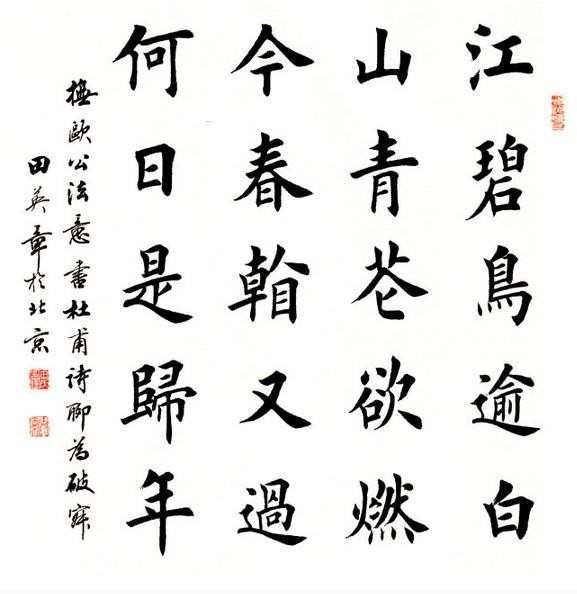 江碧鳥逾白
山青花欲燃
今春看又過
何日是歸年
橅歐公法意書杜甫詩聊為破寂
田英章於北京